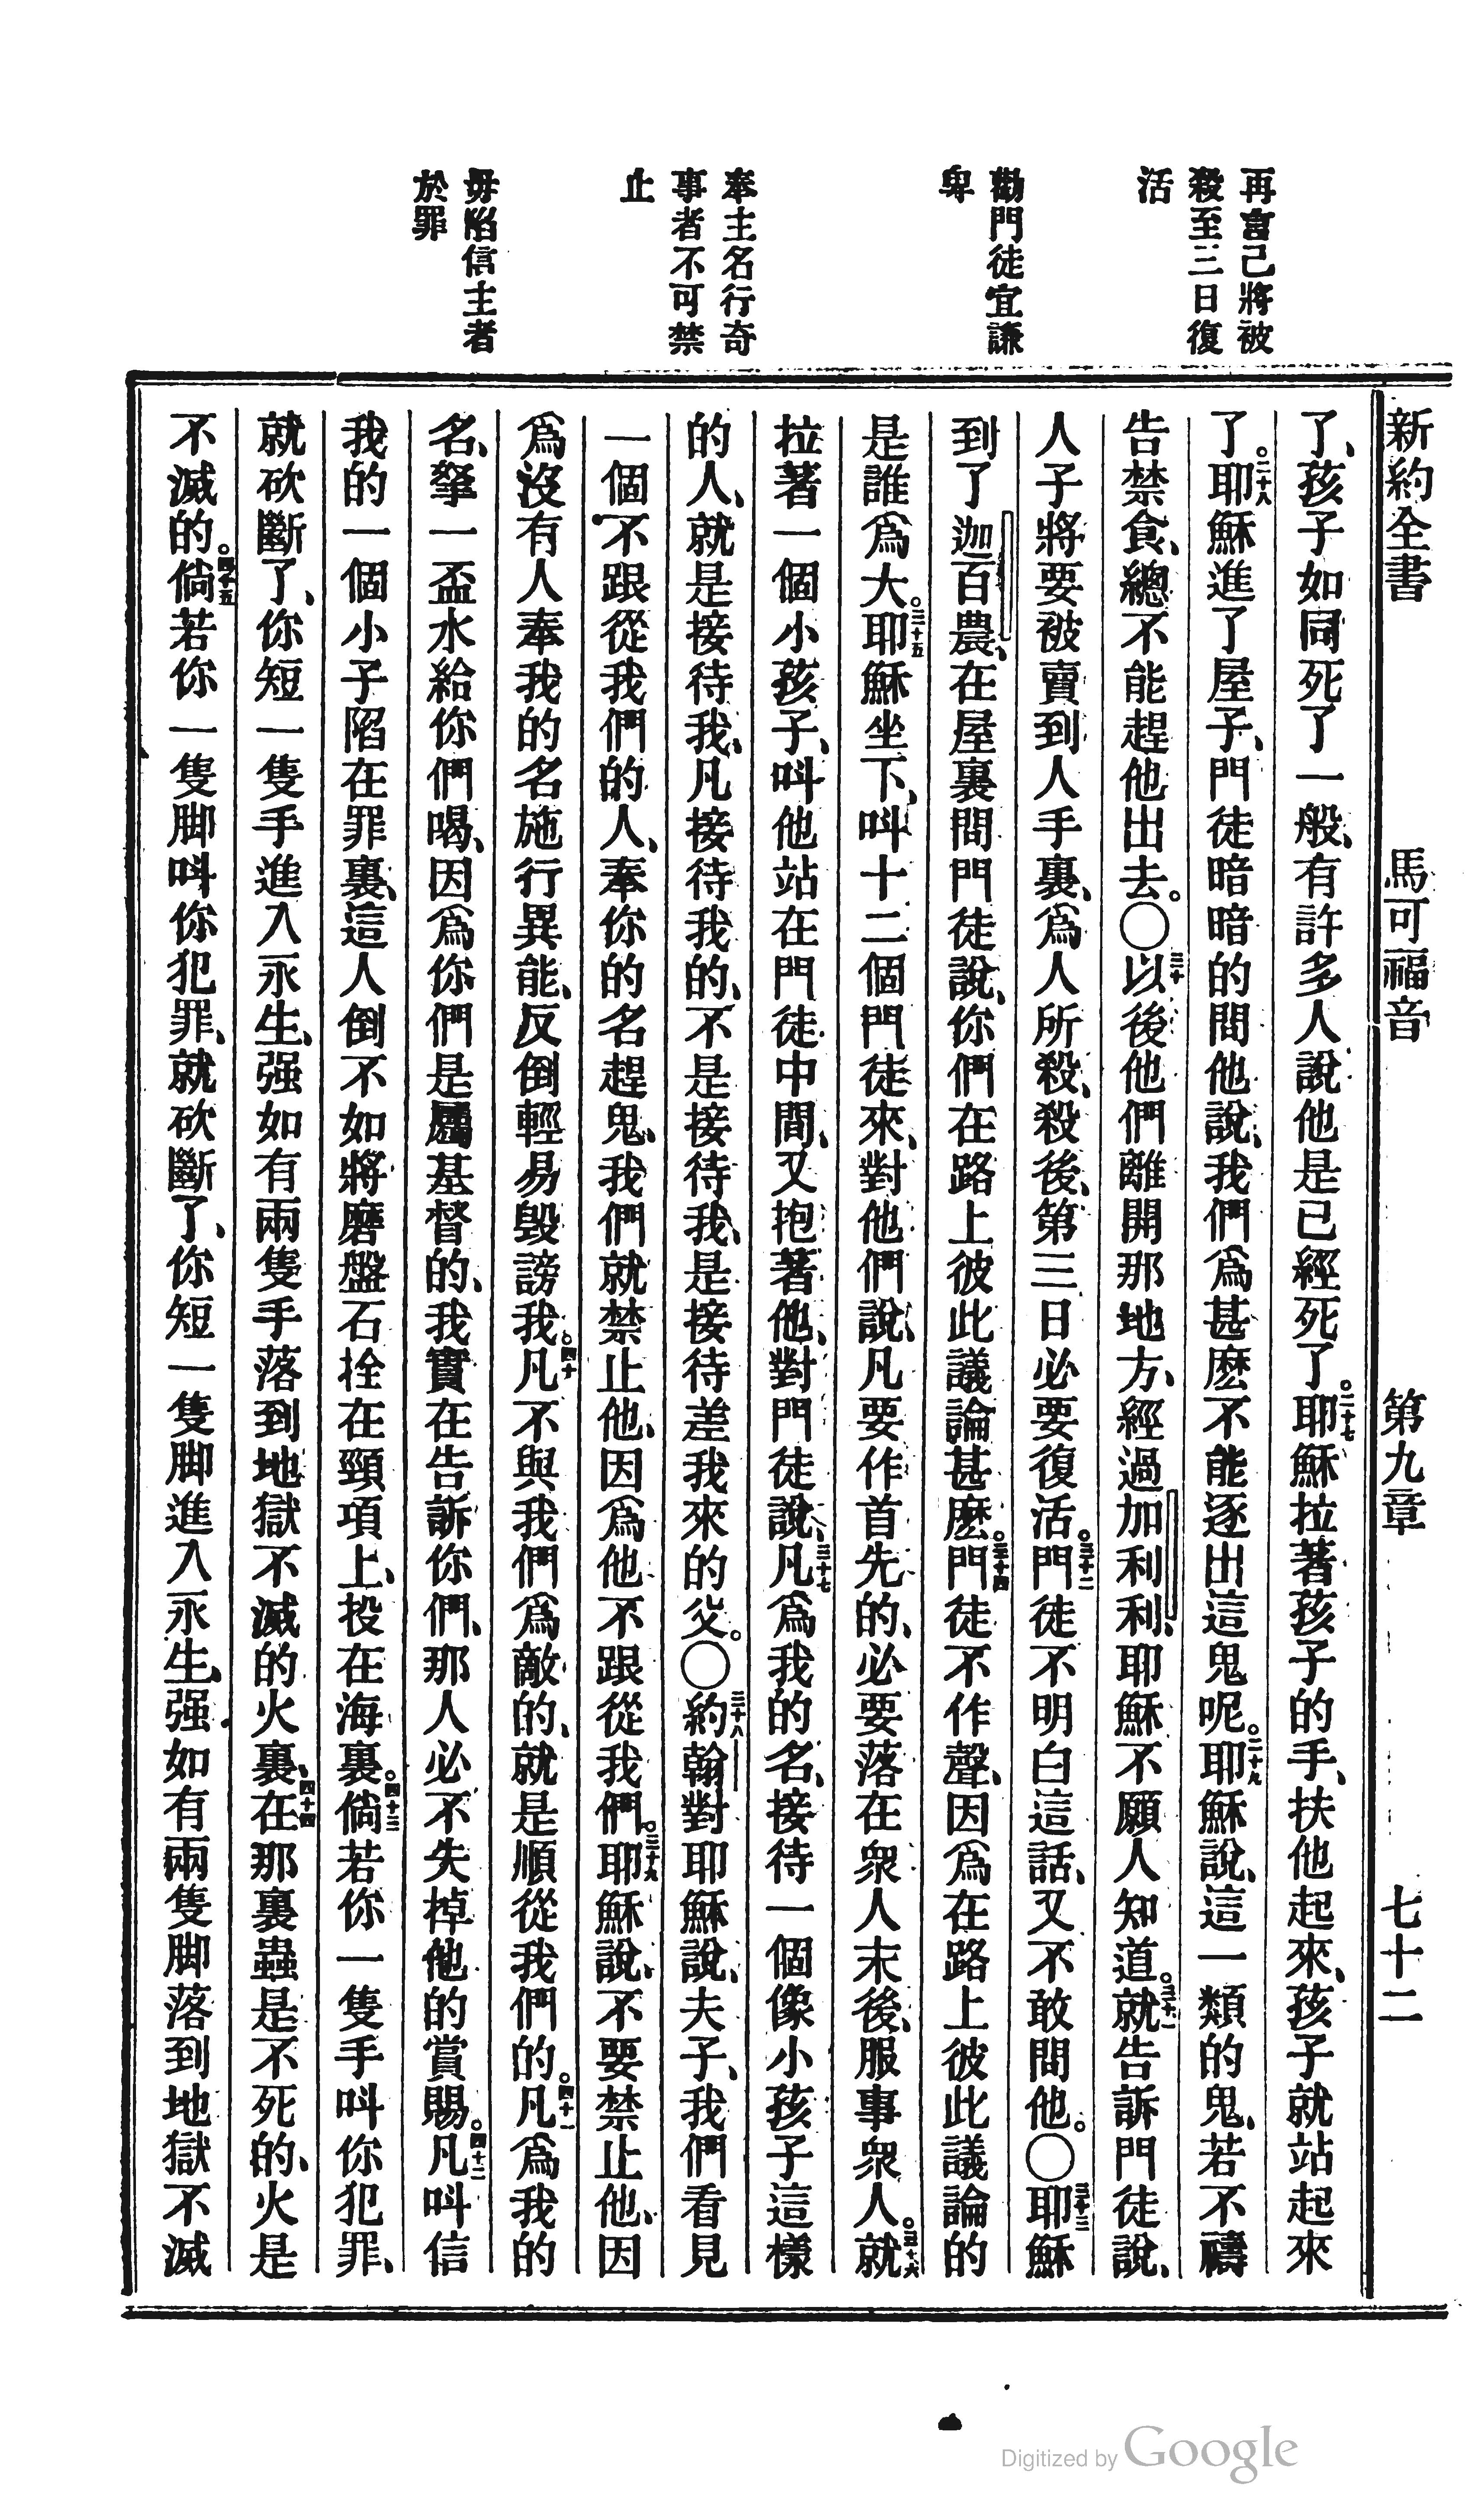 新約全書 馬可福音 第九章 七十二
再言己將被
殺至三日復
活
勸門徒宜謙
卑
奉主名行奇
事者不可禁
止
毋陷信主者
於罪
了、孩子如同死了一般、有許多人說他是已經死了。二十七耶穌拉著孩子的手、扶他起來、孩子就站起來
了。二十八耶穌進了屋子、門徒暗暗的問他說、我們爲甚麽不能逐出這鬼呢。二十九耶穌說、這一類的鬼、若不禱
告禁食、總不能趕他出去。〇三十以後他們離開那地方、經過加利利、耶穌不願人知道。三十一就告訴門徒說、
人子將要被賣到人手裏、爲人所殺、殺後、第三日必要復活。三十二門徒不明白這話、又不敢問他。〇三十三耶穌
到了迦百農、在屋裏問門徒說、你們在路上彼此議論甚麽。三十四門徒不作聲、因爲在路上彼此議論的
是誰爲大。三十五耶穌坐下、呌十二個門徒來、對他們說、凡要作首先的、必要落在衆人末後、服事衆人。三十六就
拉著一個小孩子、呌他站在門徒中間、又抱著他、對門徒說、三十七凡爲我的名、接待一個像小孩子這樣
的人、就是接待我、凡接待我的、不是接待我、是接待差我來的父。〇三十八約翰對耶穌說、夫子、我們看見
一個不跟從我們的人、奉你的名趕鬼、我們就禁止他、因爲他不跟從我們。三十九耶穌說、不要禁止他、因
爲沒有人奉我的名施行異能、反倒輕易毀謗我。四十凡不與我們爲敵的、就是順從我們的。四十一凡爲我的
名、拏一盃水給你們喝、因爲你們是屬基督的、我實在告訴你們、那人必不失掉他的賞賜。四十二凡呌信
我的一個小子陷在罪裏、這人倒不如將磨盤石拴在頸項上、投在海裏。四十三倘若你一隻手呌你犯罪、
就砍斷了、你短一隻手進入永生、强如有兩隻手落到地獄不滅的火裏、四十四在那裏蟲是不死的、火是
不滅的。四十五倘若你一隻脚呌你犯罪、就砍斷了、你短一隻脚進入永生、强如有兩隻脚落到地獄不滅
Digitized by Google